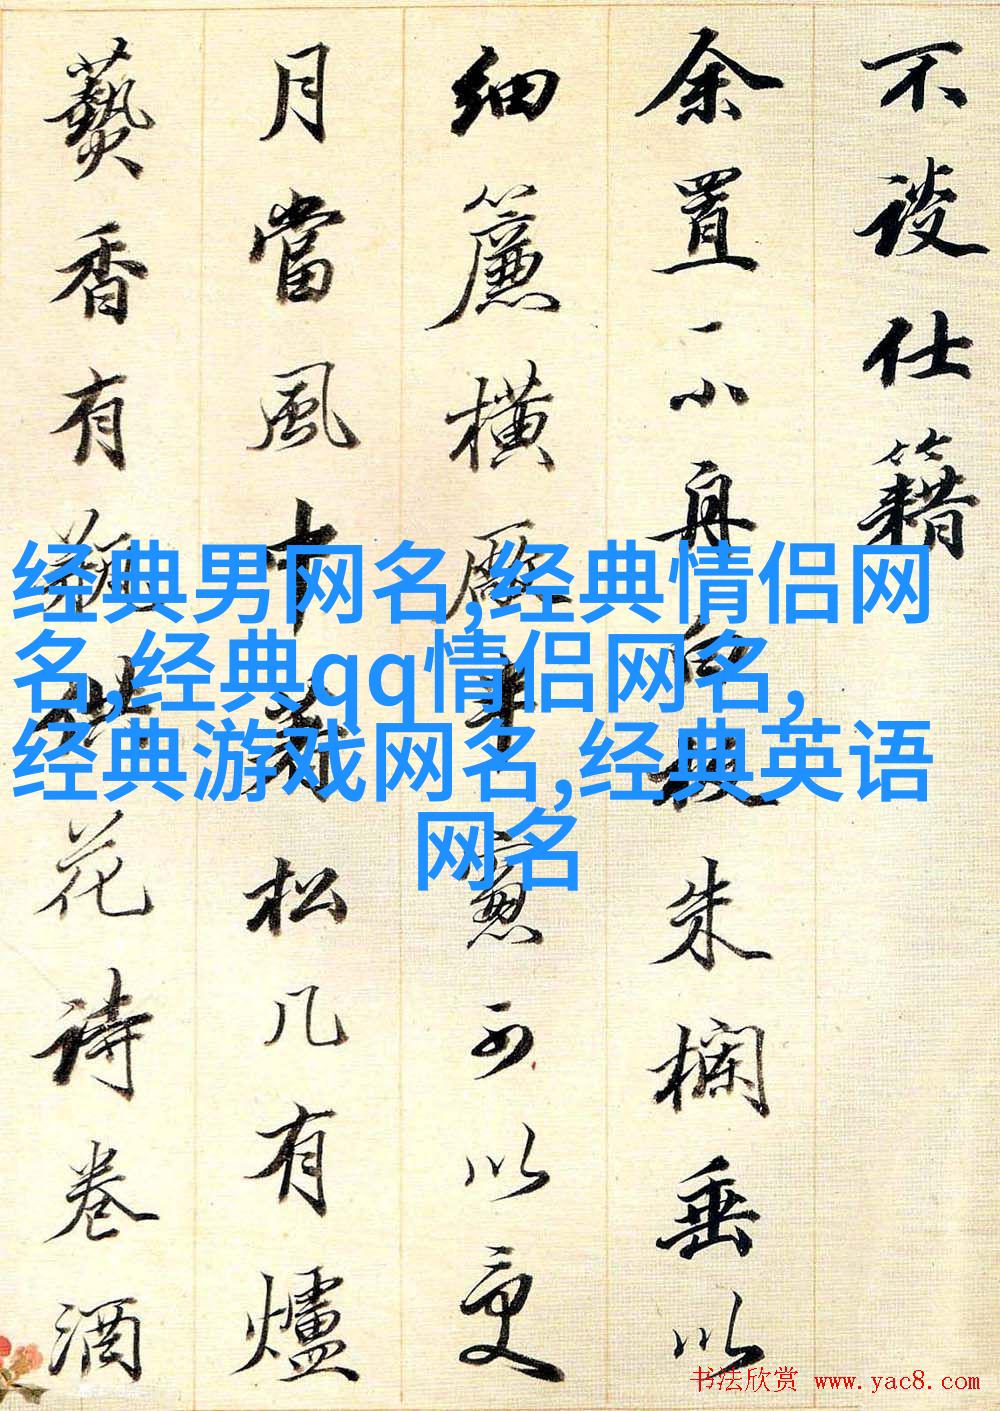 不談仕籍
余置一小舟白板朱欄垂以
細簾橫厰半窻可以更
月當風中著松几有爐
爇香有瓶供花詩卷酒
经典男网名,经典情侣网
名,经典qq情侣网名,
经典游戏网名,经典英语
网名
书法欣赏 www.yac8.com